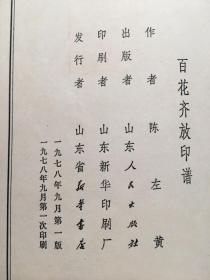 百花齐放印谱
作者 陈左黄
出版者 山东人民出版社
印刷者 山东新华印刷厂
发行者 山东省新华书店
一九七八年九月第一版
一九七八年九月第一次印刷